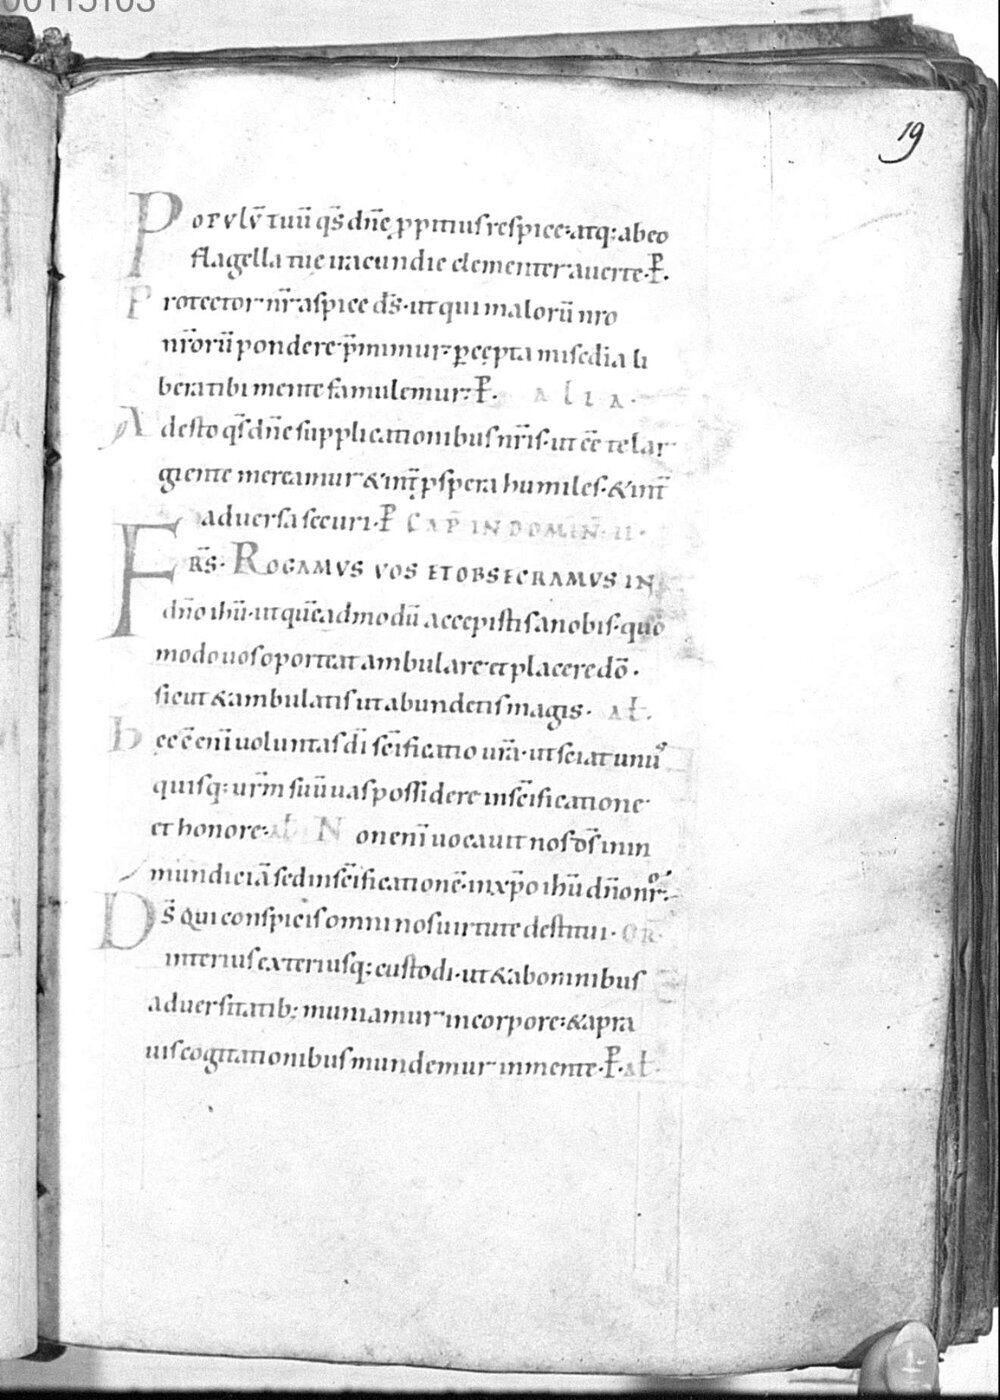 00115103
19
POPVLV̄ tuū qs̄ dn̄e ꝓpitius respice· atq: ab eo
flagella tue iracundie clementer auerte· P̄.
Protector nr̄ aspice ds̄· ut qui malorū nro
nr̄orū pondere p̄mimur· ꝑcępta misc̄dia li
bera tibi mente famulemur· P̄. ALIA·
Adesto qs̄ dn̄e supplicationibus nr̄is· ut eē te lar
giente mereamur & int̄ ꝓspera humiles· & int̄
aduersa securi· P̄ CAP̄ IN DOMIN̄· II·
FRS̄· ROGAMVS VOS ET OBSECRAMVS IN
dn̄o ihū· ut quēadmodū accepistis a nobis· quō
modo uos oporteat ambulare et placere dō·
sicut & ambulatis ut abundetis magis· aƚ.
hęc ē enī uoluntas dī sc̄ificatio ur̄a· ut sciat unus
quisq: ur̄m suū uas possidere in sc̄ificatione
et honore· aƚ Non enī uocauit nos ds̄ in in
mundiciā sed in sc̄ificationē· in xp̄o ihū dn̄o nr̄o·
Ds̄ qui conspicis omni nos uirtute destitui· OR·
interius exteriusq: custodi· ut & ab omnibus
aduersitatib: muniamur in corpore· & a pra
uis cogitationibus mundemur in mente· P̄· aƚ·